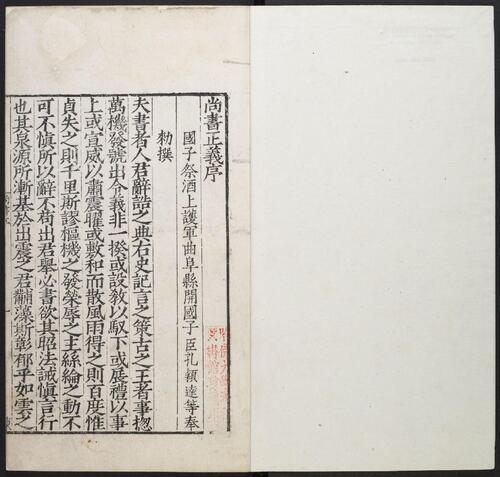 尚書正義序
國子祭酒上護軍曲阜縣開國子臣孔穎達等奉
勑撰
夫書者人君辭誥之典右史記言之策古之王者事揔
萬機發號出令義非一揆或設教以馭下或展禮以事
上或宣威以肅震曜或敷和而散風雨得之則百度惟
貞失之則千里斯謬樞機之發榮辱之主絲綸之動不
可不慎所以辭不苟出君舉必書欲其昭法誡慎言行
也其泉源所漸基於出震之君黼藻斯彰郁乎如雲之